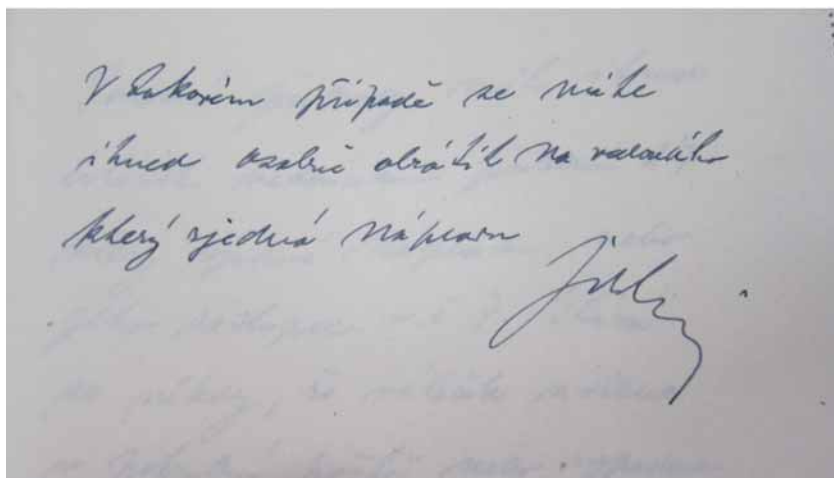 V takovém případě se může
ihned osobně obrátit na vedoucího
který sjedná nápravu